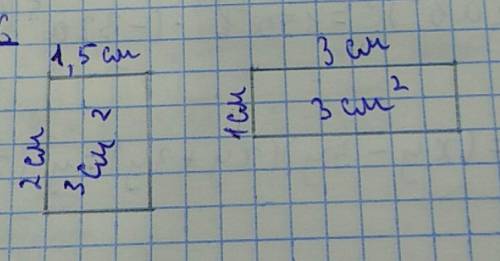 1,5 см
2 см
3 см²
3 см
1 см
3 см²